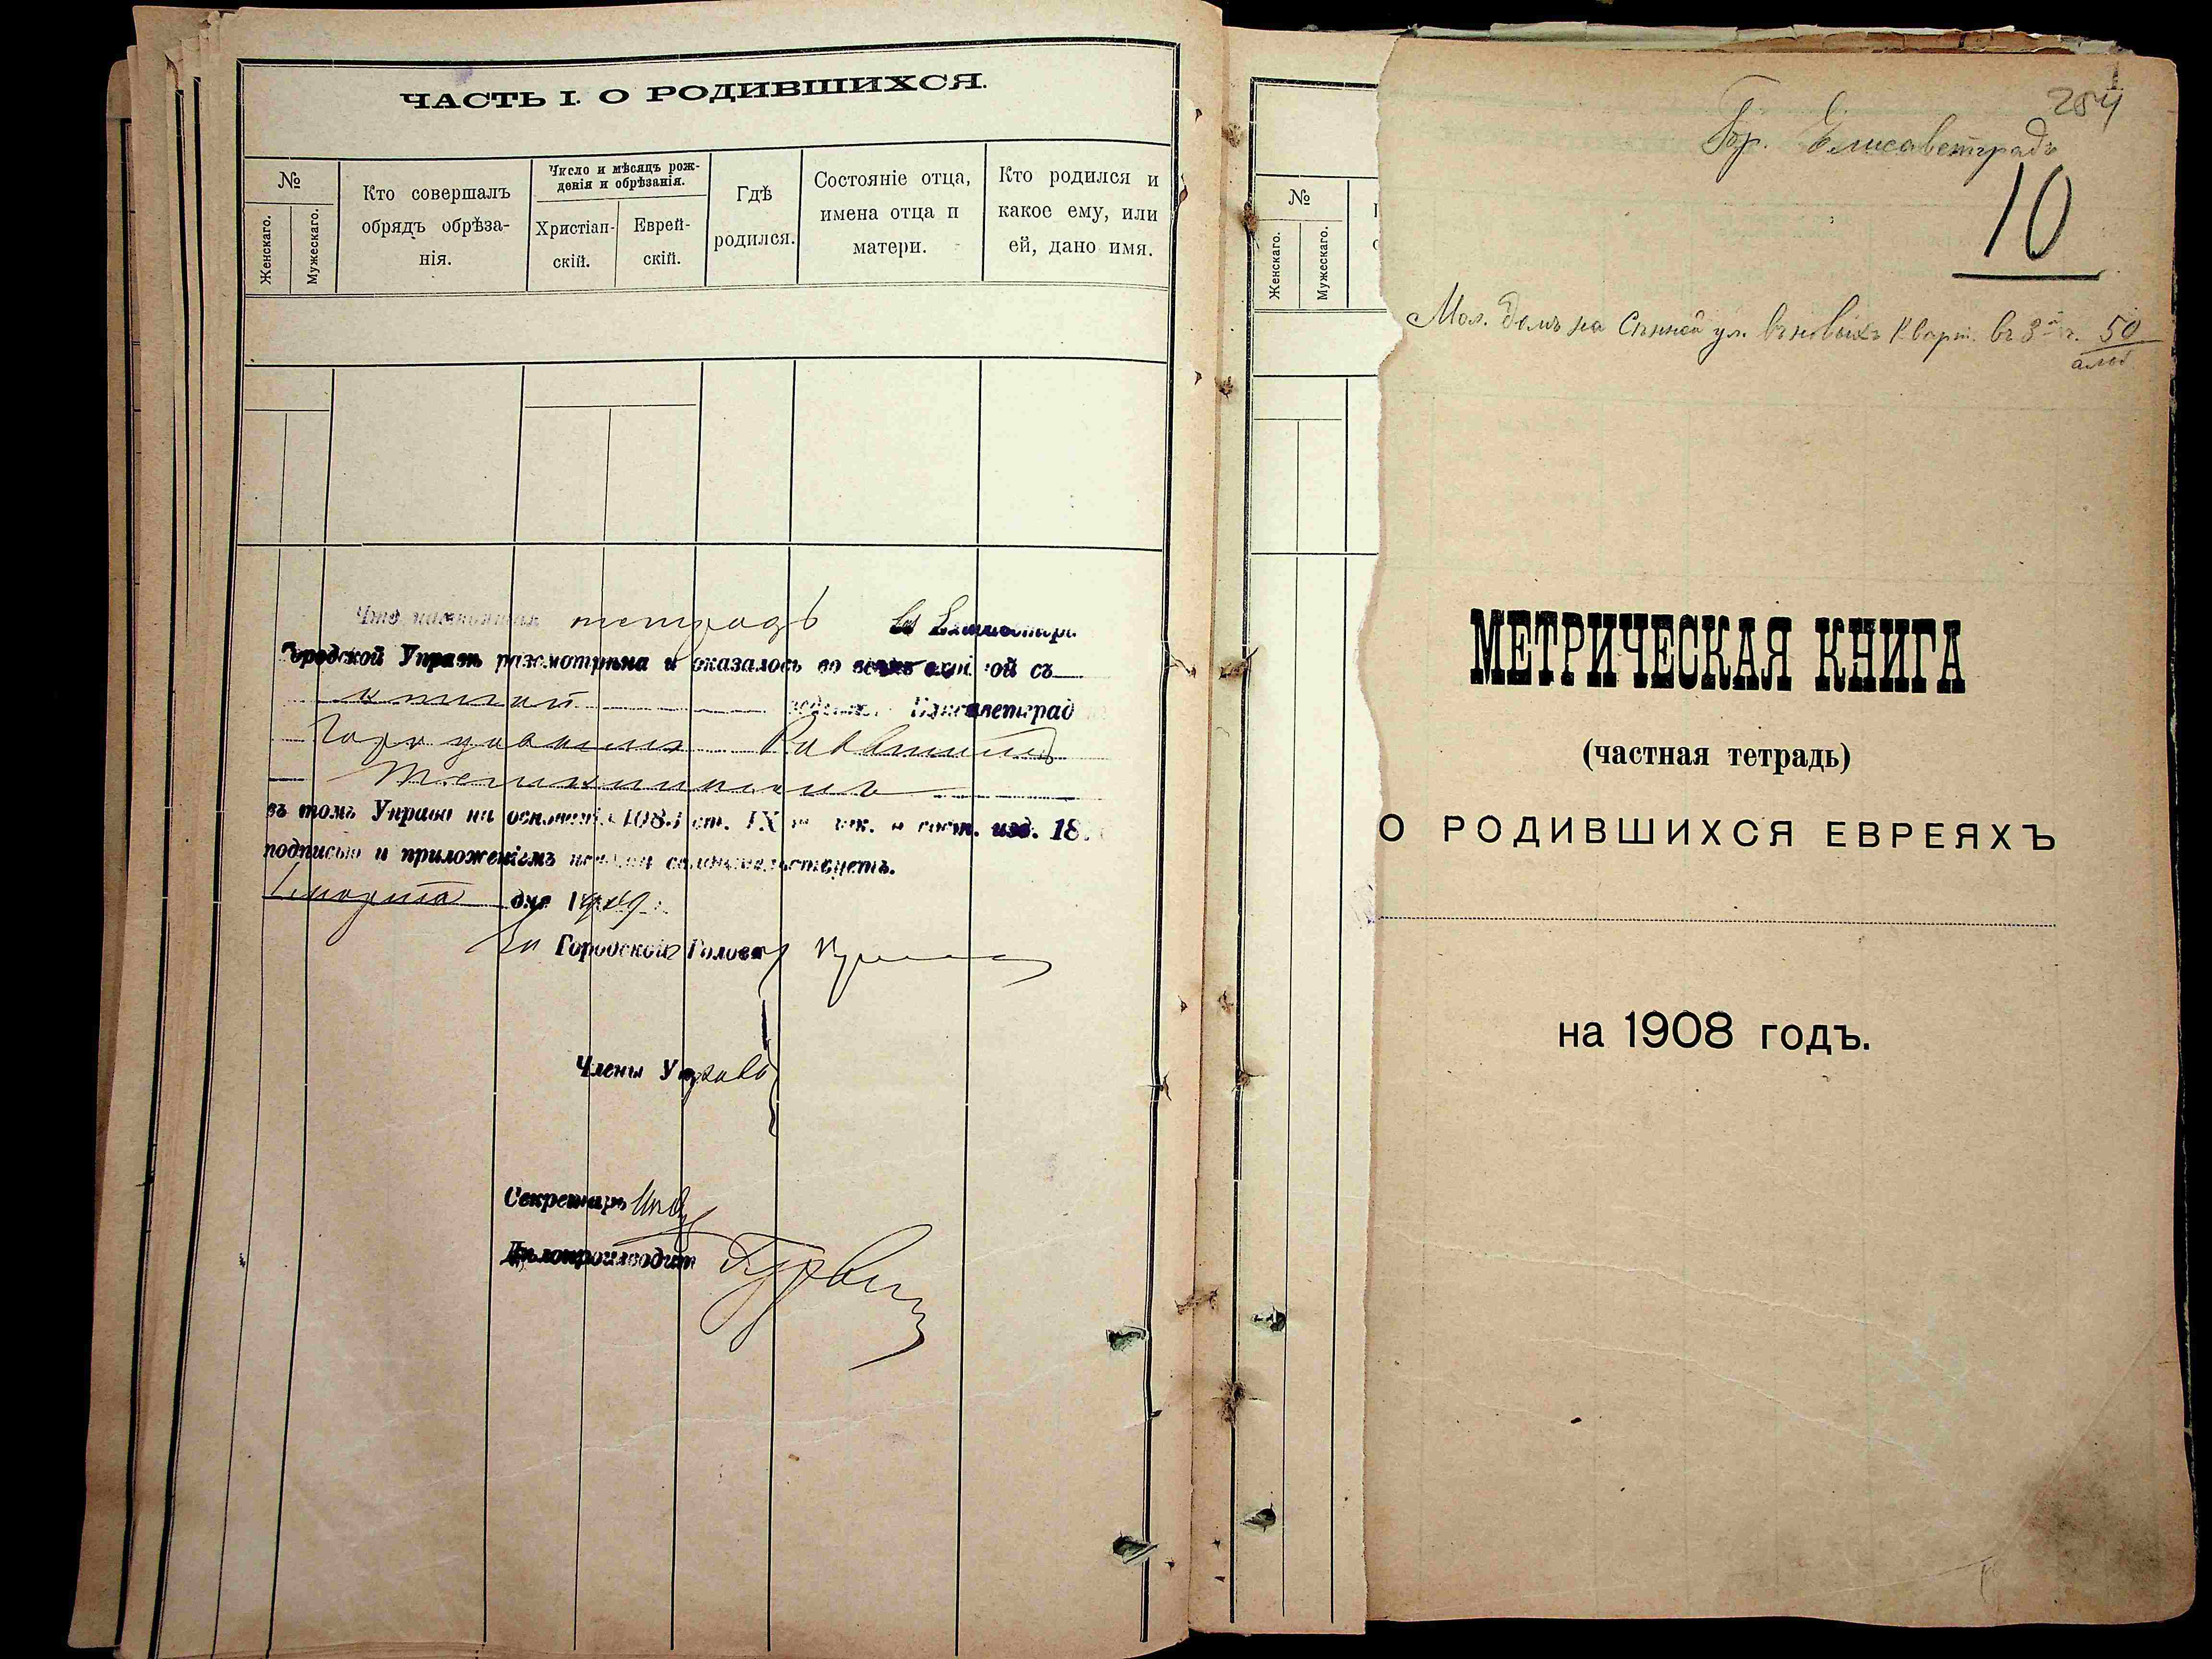 ЧАСТЬ I. О РОДИВШИХСЯ.
№
Женскаго.
Мужескаго.
Кто совершалъ
обрядъ обрѣза-
нія.
Число и мѣсяцъ рож-
денія и обрѣзанія.
Христіан-
скій.
Еврей-
скій.
Гдѣ
родился.
Состояніе отца,
имена отца и
матери.
Кто родился и
какое ему, или
ей, дано имя.
Что настоящая тетрадь въ
Городской Управѣ разсмотрѣна и оказалось во всемъ съ
книгой Елисаветград
Раввиномъ
въ томъ Управа на основаніи ст. IX изд. 18
подписью и приложеніемъ печати свидѣтельствуетъ.
марта дня 1909
За Городской Голова
Члены Управы
Секретарь
Дѣлопроизводит Гурвиц
№
Женскаго.
Мужескаго.
284
Гор. Елисаветградъ
10
Мол. домъ на Сѣнной ул. въ новыхъ кварт. въ 3й ч. 50
МЕТРИЧЕСКАЯ КНИГА
(частная тетрадь)
О РОДИВШИХСЯ ЕВРЕЯХЪ
на 1908 годъ.